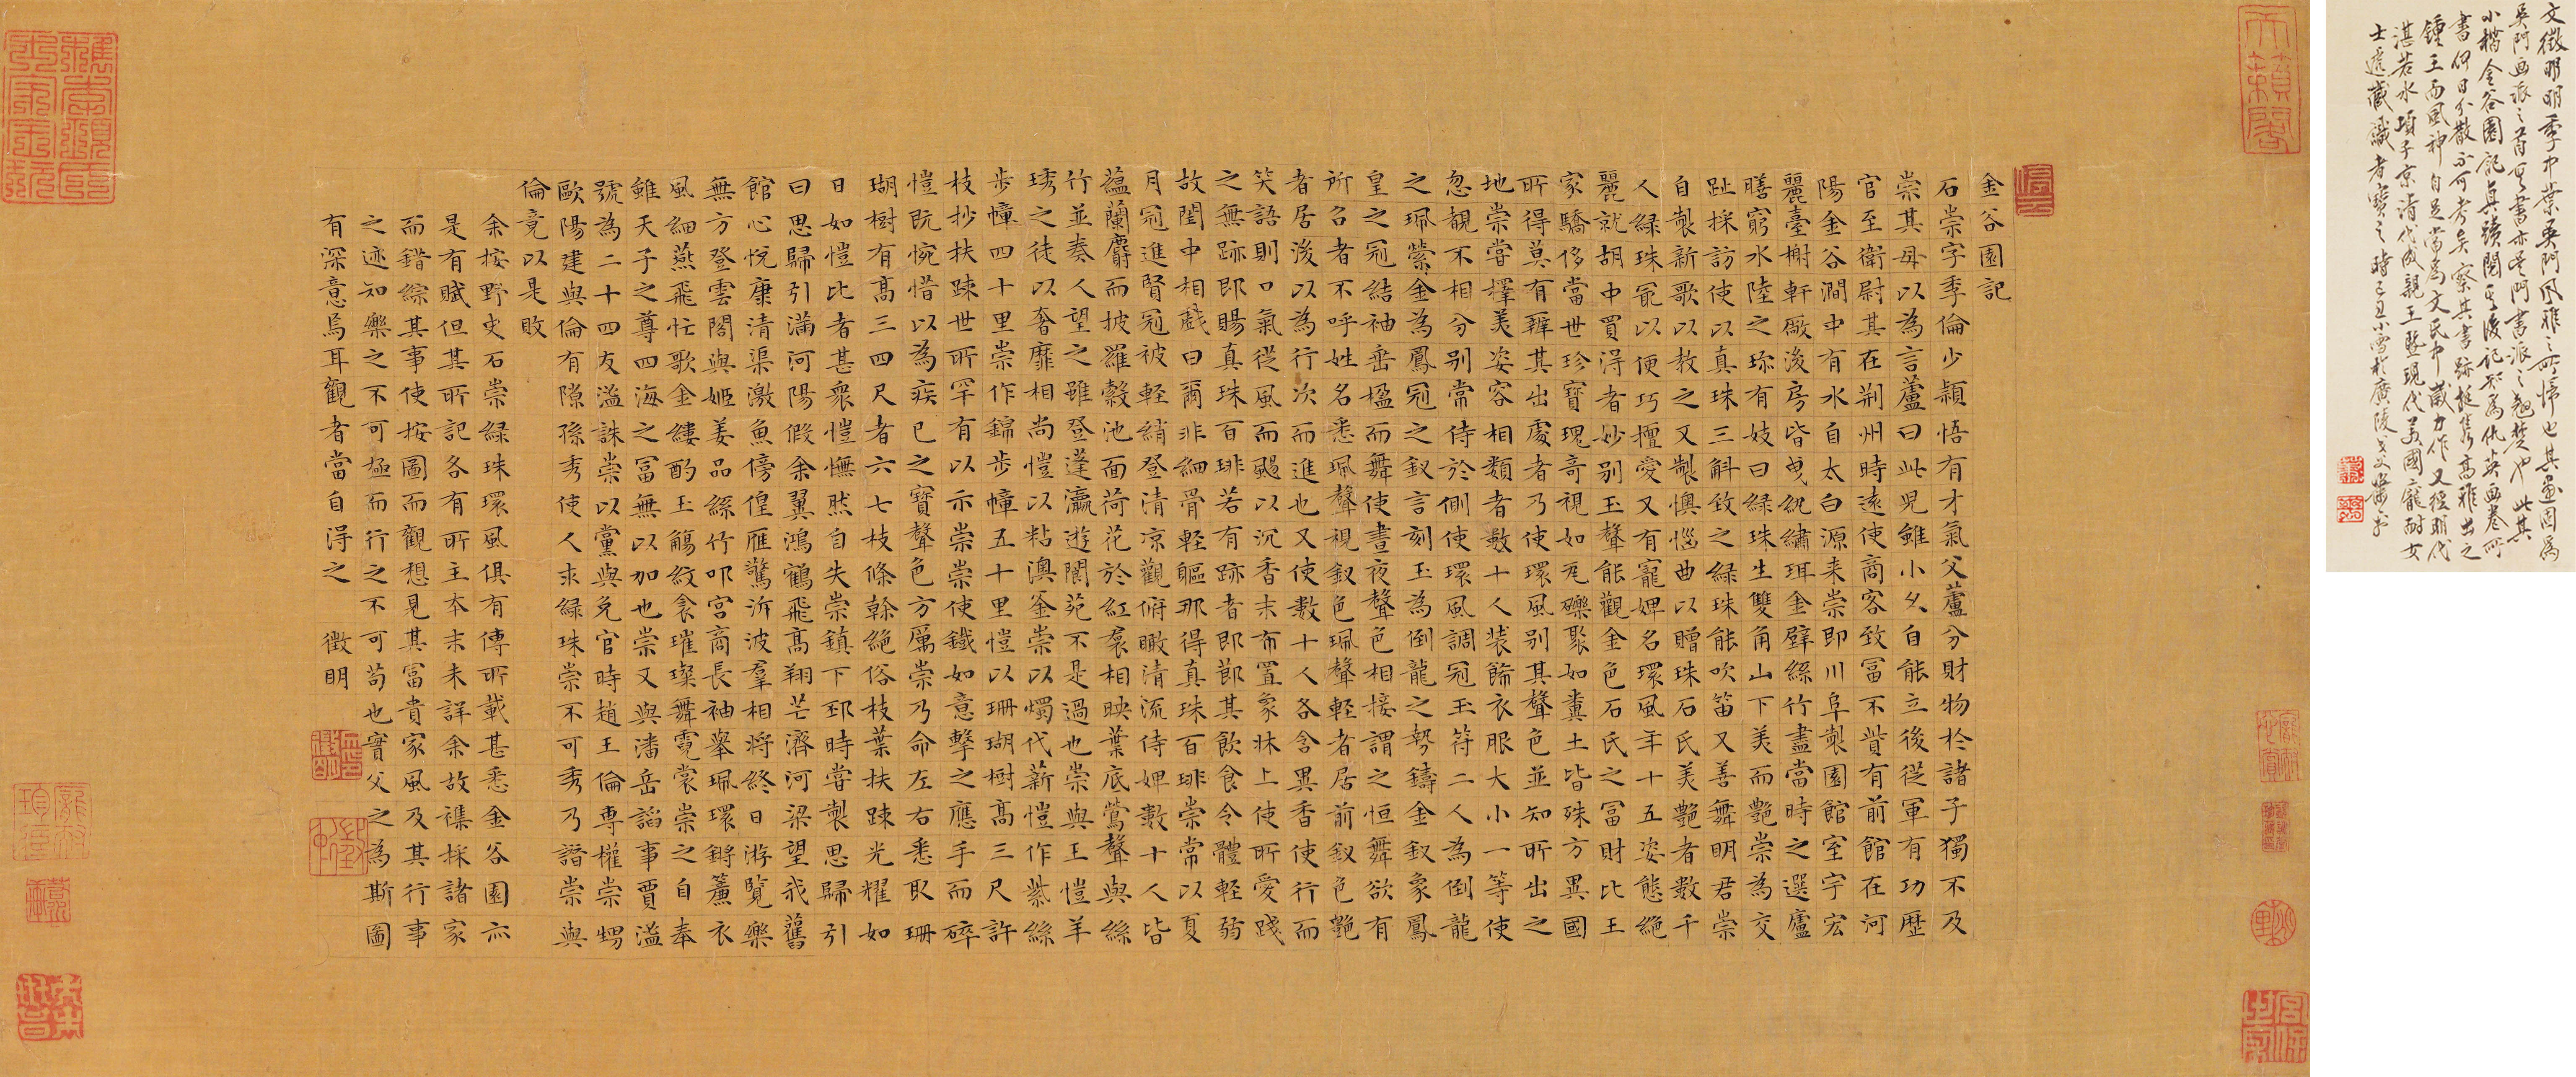 金谷園記
石崇字季倫少穎悟有才氣父蘆分財物於諸子獨不及
崇其母以為言蘆曰此兒雖小久自能立後從軍有功歷
官至衛尉其在荊州時遠使商客致冨不貲有前館在河
陽金谷澗中有水自太白源来崇即川阜製園館室宇宏
麗臺榭軒厰後房皆曵紈繡珥金璧絲竹盡當時之選廬
膳窮水陸之珎有妓曰緑珠生雙角山下美而艷崇為交
趾採訪使以真珠三斛致之緑珠能吹笛又善舞明君崇
自製新歌以教之又製懊惱曲以贈珠石氏美艷者數千
人緑珠冣以便巧擅愛又有寵婢名環風年十五姿態絶
麗就胡中買淂者妙别玉聲能觀金色石氏之冨財比王
家驕侈當世珍寶瑰奇視如瓦礫聚如糞土皆殊方異國
所得莫有辯其出處者乃使環風别其聲色並知所出之
地崇嘗擇美姿容相類者數十人装餙衣服大小一等使
忽覩不相分别常侍於側使環風調冠玉符二人為倒龍
之珮縈金為鳳冠之釵言刻玉為倒龍之勢鑄金釵象鳳
皇之冠結袖垂楹而舞使晝夜聲色相接謂之恒舞欲有
所召者不呼姓名悉珮聲視釵色珮聲軽者居前釵色艷
者居後以為行次而進也又使數十人各含異香使行而
笑語則口氣從風而颺以沉香末布置象牀上使所愛踐
之無跡即賜真珠百琲若有跡者即節其飲食令體軽弱
故閨中相戲曰爾非細骨軽軀那得真珠百琲崇常以夏
月冠進賢冠被軽綃登清涼觀俯瞰清流侍婢數十人皆
蕴蘭麝而披羅縠池面荷花於紅裠相映葉底鶯聲與絲
竹並奏人望之雖登蓬瀛遊閬苑不是過也崇與王愷羊
琇之徒以奢靡相尚愷以粘澳釜崇以燭代薪愷作紫絲
步幛四十里崇作錦步幛五十里愷以珊瑚樹髙三尺許
枝抄扶踈世所罕有以示崇崇使鐵如意擊之應手而碎
愷既惋惜以為疾已之寶聲色方厲崇乃命左右悉取珊
瑚樹有髙三四尺者六七枝條榦絶俗枝葉扶踈光耀如
日如愷比者甚衆愷憮然自失崇鎮下邳時嘗製思歸引
曰思歸引滿河陽假余翼鴻鶴飛髙翔茫濟河梁望我舊
館心悅康清渠激魚傍偟雁驚泝波羣相将終日游覧樂
無方登雲閣與姬姜品絲竹叩宫商長袖舉珮環鏘簾衣
風細燕飛忙歌金縷酌玉觴紋衾璀璨舞霓裳崇之自奉
雖天子之尊四海之冨無以加也崇又與潘岳謟事賈謐
號為二十四友謐誅崇以黨與免官時趙王倫専權崇甥
歐陽建與倫有隙孫秀使人求緑珠崇不可秀乃譖崇與
倫竟以是敗
余按野史石崇緑珠環風俱有傳所載甚悉金谷園亦
是有賦但其所記各有所主本末未詳余故襍採諸家
而錯綜其事使按圖而觀想見其冨貴家風及其行事
之迹知樂之不可極而行之不可苟也實父之為斯圖
有深意焉耳觀者當自淂之　徵明
文徵明明季中葉吳門風雅之所歸也其畫固為
吳門画派之首而書亦是吳門書派之翹楚也此其
小楷金谷園記真蹟閱其後記知為仇英画卷所
書何日分散不可考矣察其書跡挺秀高雅出之
鍾王而風神自足當為文氏中歲力作又經明代
湛若水項子京清代成親王暨現代美國龐耐女
士遞藏識者寶之時己丑小雪於廣陵